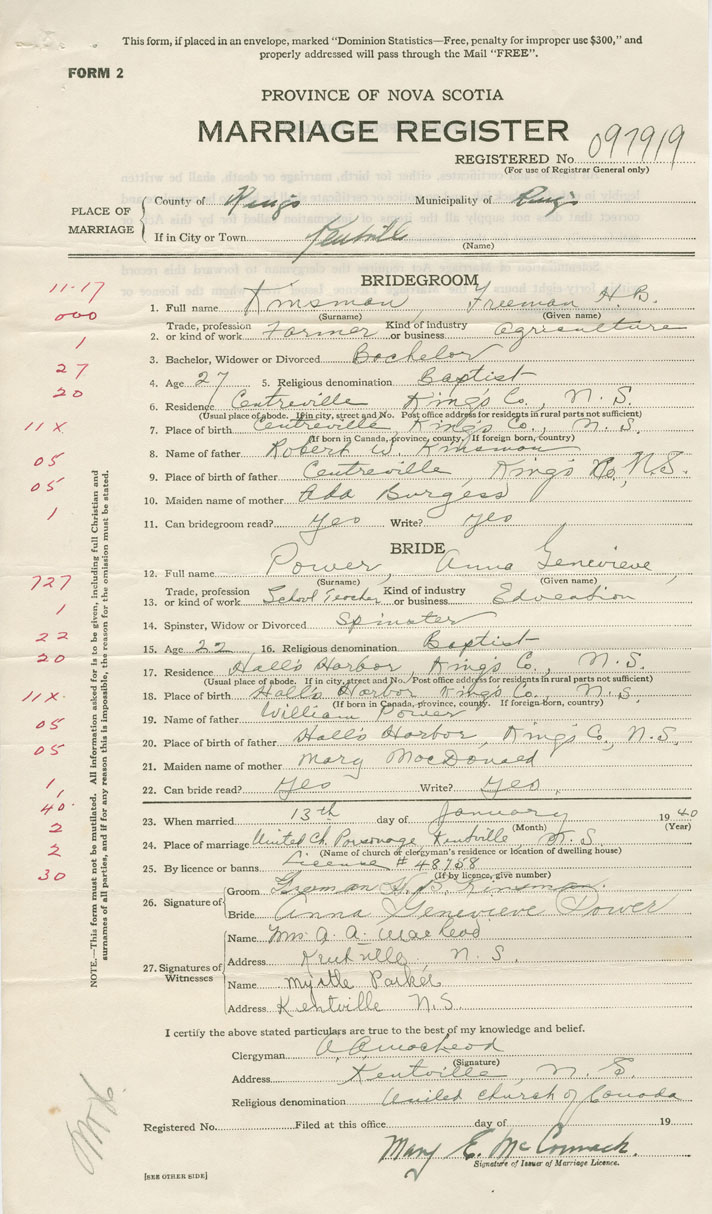 This form, if placed in an envelope, marked "Dominion Statistics—Free, penalty for improper use $300," and
properly addressed will pass through the Mail "FREE".
FORM 2
PROVINCE OF NOVA SCOTIA
MARRIAGE REGISTER
REGISTERED No. 097919
(For use of Registrar General only)
PLACE OF MARRIAGE
County of Kings Municipality of Kings
If in City or Town Kentville
(Name)
BRIDEGROOM
11-17
1. Full name Kinsman, Freeman H. B.
(Surname) (Given name)
000
2. Trade, profession or kind of work Farmer Kind of industry or business agriculture
1
3. Bachelor, Widower or Divorced Bachelor
27
4. Age 27 5. Religious denomination Baptist
20
6. Residence Centreville King's Co., N. S.
(Usual place of abode. If in city, street and No. Post office address for residents in rural parts not sufficient)
11X
7. Place of birth Centreville, King's Co., N. S.
(If born in Canada, province, county. If foreign born, country)
8. Name of father Robert W. Kinsman
05
9. Place of birth of father Centreville, King's Co., N.S.
05
10. Maiden name of mother Ada Burgess
1
11. Can bridegroom read? Yes Write? Yes
BRIDE
12. Full name Power, Anna Genevieve,
(Surname) (Given name)
727
13. Trade, profession or kind of work School Teacher Kind of industry or business Education
1
14. Spinster, Widow or Divorced Spinster
22
15. Age 22 16. Religious denomination Baptist
20
17. Residence Hall's Harbor, King's Co., N. S.
(Usual place of abode. If in city, street and No. Post office address for residents in rural parts not sufficient)
11X.
18. Place of birth Hall's Harbor King's Co., N. S.
(If born in Canada, province, county. If foreign-born, country)
19. Name of father William Power
05
20. Place of birth of father Hall's Harbor, King's Co., N.S.
05
21. Maiden name of mother Mary MacDonald
1
22. Can bride read? Yes Write? Yes.
1
40.
23. When married 13th day of January 1940
(Month) (Year)
2
24. Place of marriage United Ch. Parsonage, Kentville, N. S.
(Name of church or clergyman's residence or location of dwelling house)
2
25. By licence or banns License # 48758
(If by licence, give number)
30
26. Signature of
Groom Freeman H. B. Kinsman.
Bride Anna Genevieve Power
27. Signatures of Witnesses
Name Mrs. A. A. MacLeod
Address Kentville, N. S.
Name Myrtle Parker
Address Kentville N.S
I certify the above stated particulars are true to the best of my knowledge and belief.
Clergyman A. A. MacLeod
(Signature)
Address Kentville, N. S.
Religious denomination United Church of Canada
Registered No. Filed at this office day of 19
Mary E. McCormack.
Signature of Issuer of Marriage Licence.
[SEE OTHER SIDE]
NOTE.—This form must not be mutilated. All information asked for is to be given, including full Christian and
surnames of all parties, and if for any reason this is impossible, the reason for the omission must be stated.